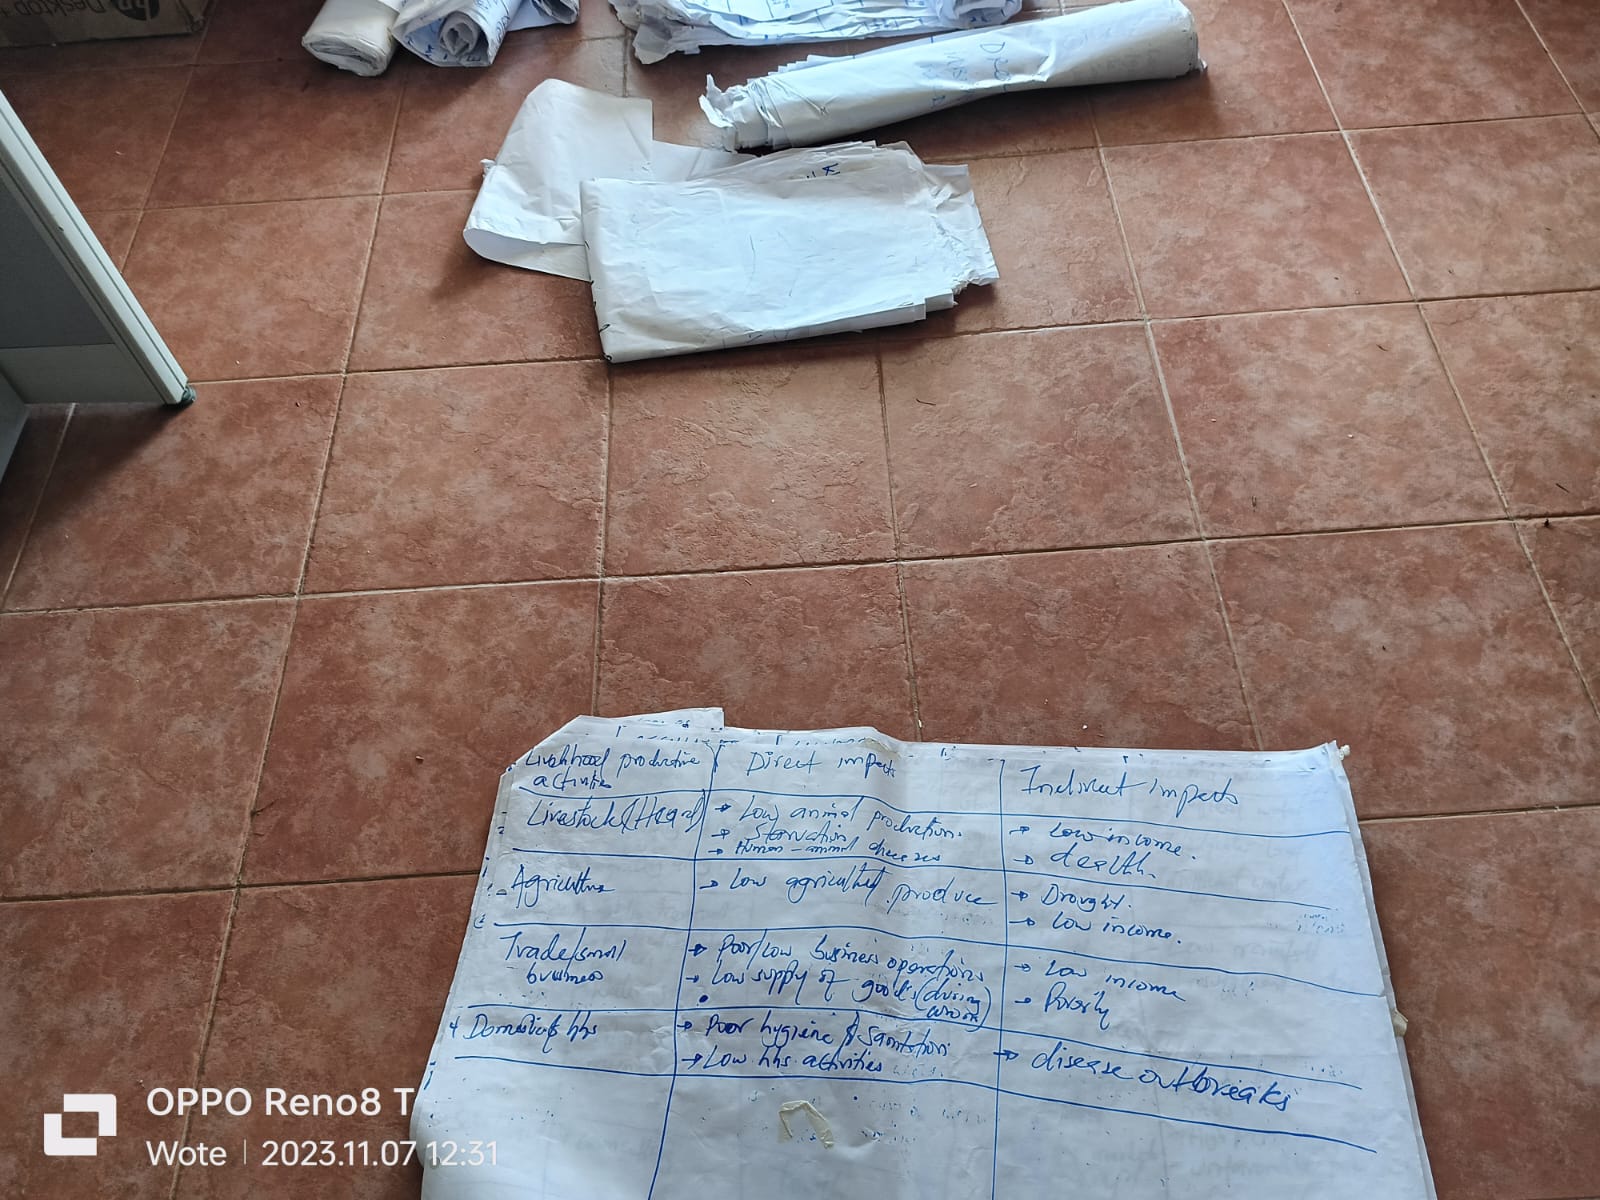 Livelihood productive
activities
Direct impacts
Indirect impacts
Livestock
→ Low animal production.
→ Starvation
→ Human-animal diseases
→ Low income.
→ death.
Agriculture
→ Low agricultural produce
→ Drought.
→ Low income.
Trade/small
business
→ Poor/low business operations
→ Low supply of goods (during
→ Low income
→ Poverty
Domestic & hhs
→ Poor hygiene & Sanitation
→ Low hhs activities
→ disease outbreaks
OPPO Reno8 T
Wote | 2023.11.07 12:31